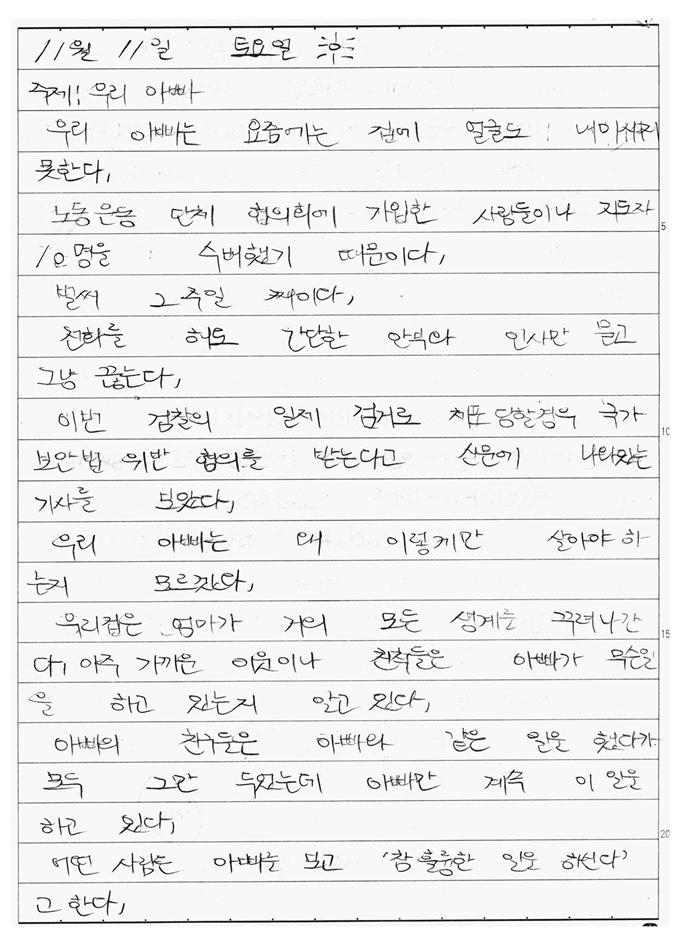 11월 11일 토요일
주제: 우리 아빠
우리 아빠는 요즘에는 집에 얼굴도 내미시지
못한다,
노동운동 단체 협의회에 가입한 사람들이나 지도자
10명을 수배했기 때문이다,
벌써 2주일 째이다,
전화를 해도 간단한 안부와 인사만 묻고
그냥 끊는다,
이번 검찰의 일제 검거로 체포 당할경우 국가
보안법 위반 혐의를 받는다고 신문에 나와있는
기사를 보았다,
우리 아빠는 왜 이렇게만 살아야 하
는지 모르겠다,
우리집은 엄마가 거의 모든 생계를 꾸려나간
다, 아주 가까운 이웃이나 친척들은 아빠가 무슨일
을 하고 있는지 알고 있다,
아빠의 친구들은 아빠와 같은 일을 했다가
모두 그만 두었는데 아빠만 계속 이 일을
하고 있다,
어떤 사람은 아빠를 보고 '참 훌륭한 일을 하신다'
고 한다,
5
10
15
20